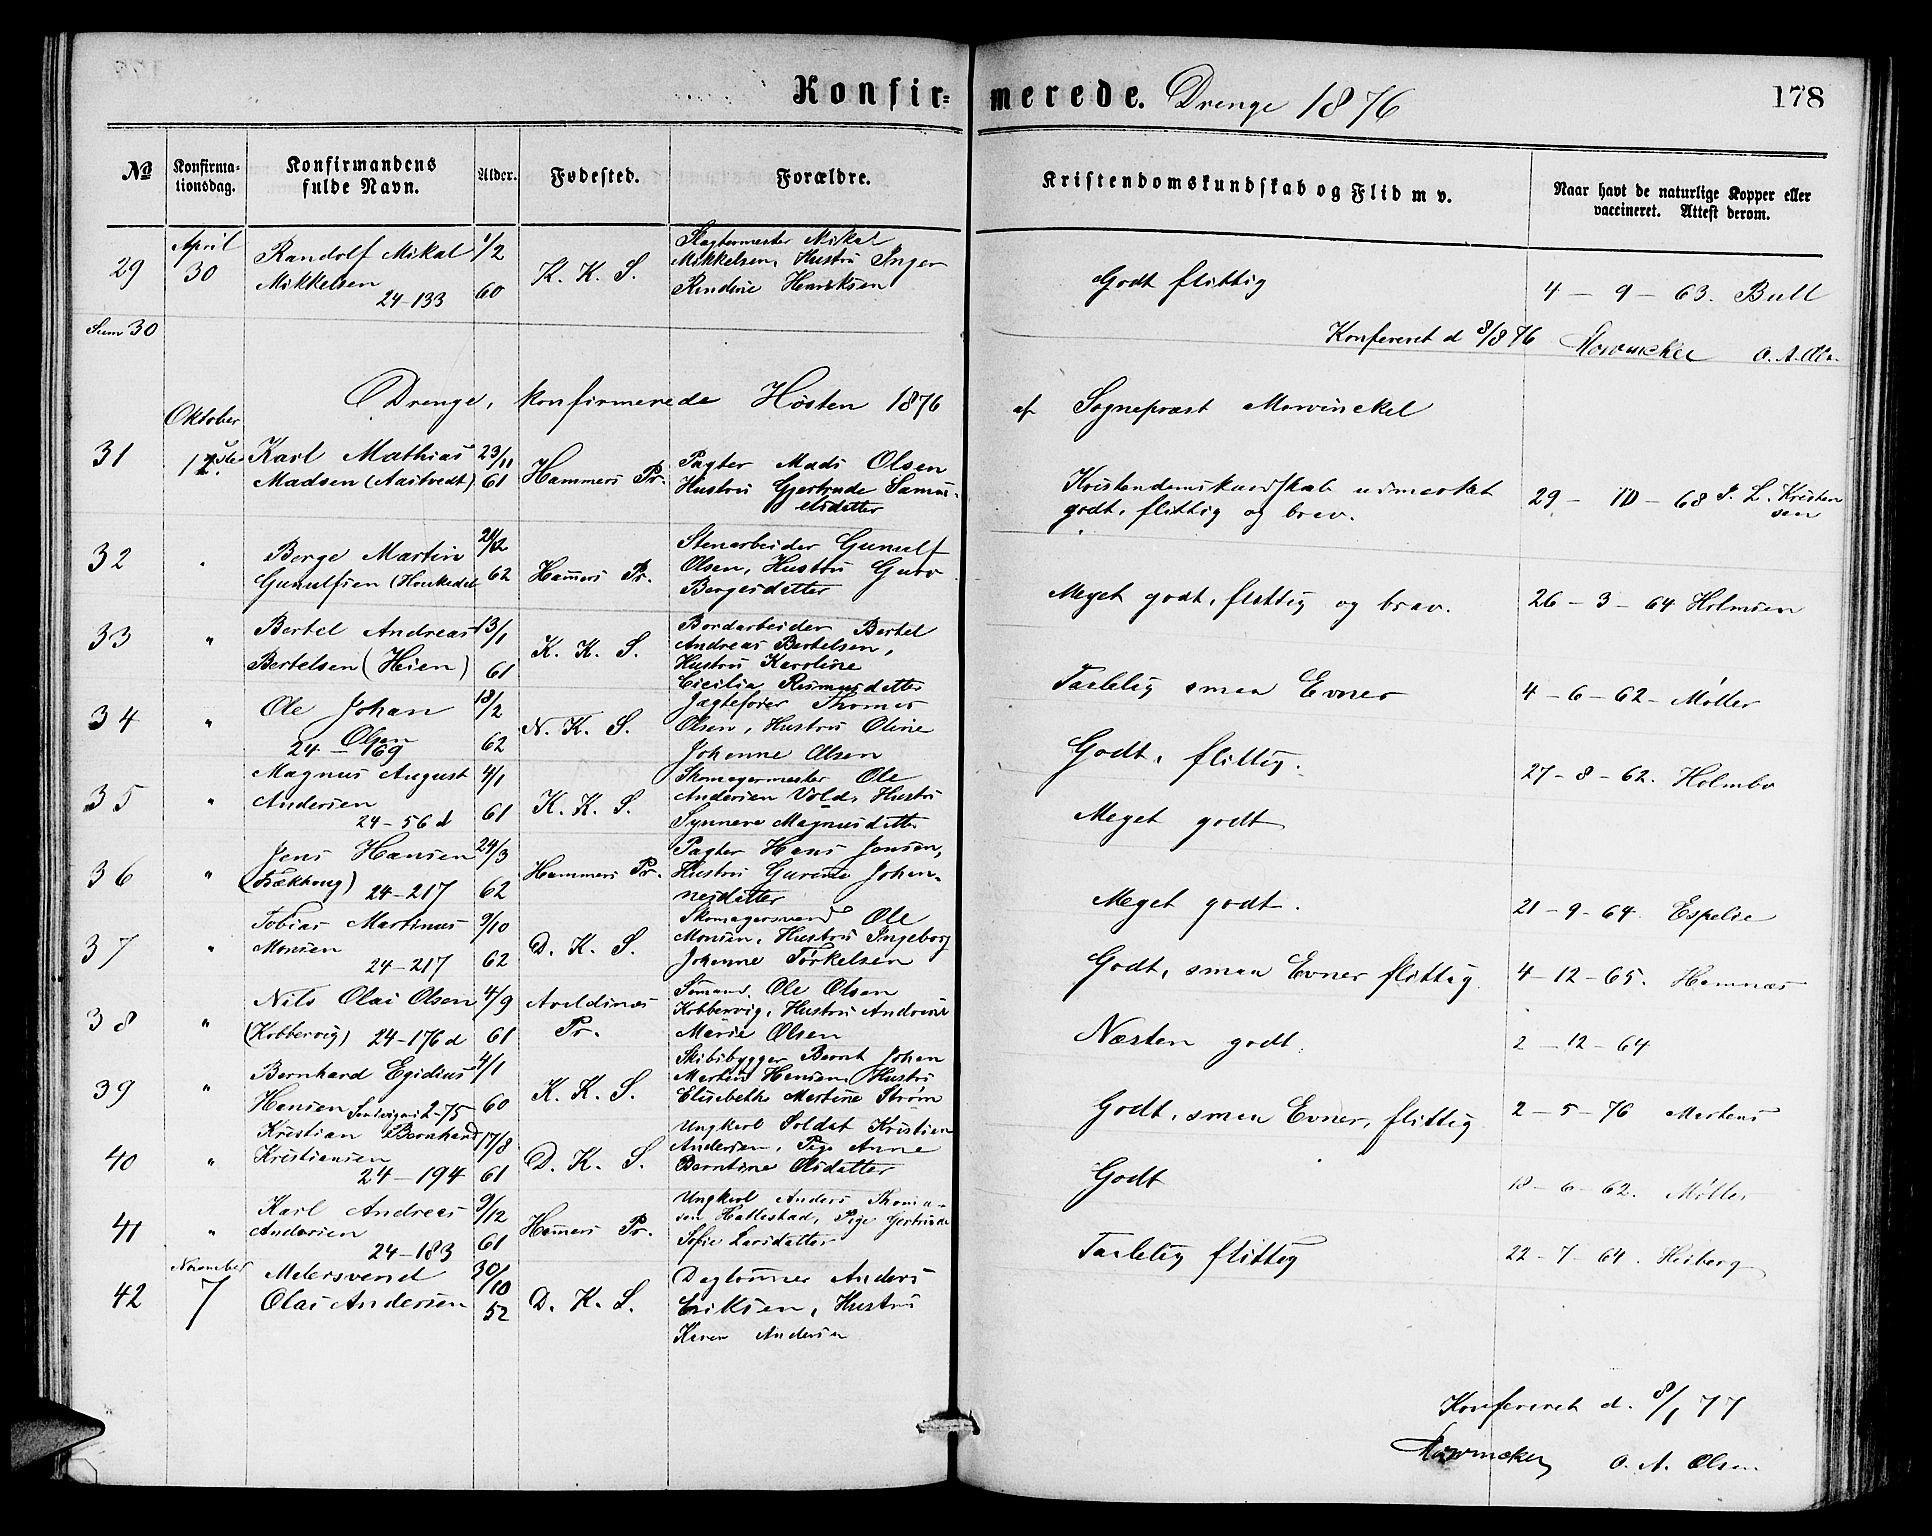 Konfir= merede. Drenge 1876
178
No
Konfirma-
tionsdag.
Konfirmandens
fulde Navn.
Alder.
Fødested.
Forældre.
Kristendomskundskab og Flid m v.
Naar havt de naturlige Kopper eller
vaccineret. Attest derom.
29
April
30
Randolf Mikal
Mikkelsen
24-133
1/2
60
K. K. S.
Slagtermester Mikal
Mikkelsen, Hustru Inger
Henriksen
Godt flittig
4 - 9 - 63. Bull
Sum 30
Konfereret d 8/8 76 Mowinckel O. A. Olsen
Drenge, konfirmerede Høsten 1876 af Sognepræst Mowinckel
Oktober
31
Karl Mathias
Madsen (Aastvedt)
23/11
61
Hammers Pr.
Pagter Mads Olsen
Hustru Gjertrude Samu-
elsdatter
Kristendomskundskab udmærket
godt, flittig og brav.
29 - 10 - 68 P. L. Kristen
sen
32
"
Berge Martin
Gunulfsen (Haukedal
62
Hamers Pr.
Stenarbeider Gunulf
Olsen, Hustru Guro
Bergesdatter
Meget godt, flittig og brav.
26 - 3 - 64 Holmsen
33
"
Bertel Andreas
Bertelsen (Heien)
13/1
61
K. K. S.
Bordarbeider Bertel
Andreas Bertelsen,
Hustru Karoline
Cicilia Rasmusdatter
Taalelig smaa Evner
4 - 6 - 62 - Møller
34
"
Ole Johan
Olsen
24 - 169
18/2
62
N. K. S.
Jægtefører Thomas
Olsen, Hustru Oline
Johanne Olsen
Godt, flittig.
27 - 8 - 62. Holmbo
35
"
Magnus August
Andersen
24 - 56 d
4/1
61
K. K. S.
Skomagermester Ole
Andersen Vold, Hustru
Synneve Magnusdatter
Meget godt
36
"
Jens Hansen
24-217
24/3
62
Hammers Pr.
Pagter Hans Jensen,
Hustru Gurine Johan-
nesdatter
Meget godt.
21 - 9 - 64. Espelie
37
"
Tobias Martinus
Monsen
24-217
9/10
62
D. K. S.
Skomagersvend Ole
Monsen, Hustru Ingeborg
Johanne Torkelsen
Godt, smaa Evner flittig
4 - 12 - 65. Hamnæs
38
"
Nils Olai Olsen
(Kobbervig) 24-176 d
4/9
61
Aveldsnæs
Pr.
Sømand Ole Olsen
Kobbervig, Hustru Andrine
Marie Olsen
Næsten godt.
2 - 12 - 64
39
"
Bernhard Egidius
Hansen Sandvigen 2-75
4/1
60
K. K. S.
Skibsbygger Bernt Johan
Martin Hansen, Hustru
Elisabeth Martine Strøm
Godt, smaa Evner, flittig
2 - 5 - 76 Martens
40
"
Kristian Bernhard
Kristiansen
24 - 194
17/8
61
D. K. S.
Ungkarl Soldat Kristian
Andersen, Pige Anne
Berntine Olsdatter
Godt
18 - 6 - 62. Møller
41
"
Karl Andreas
Andersen
24-183
9/12
61
Hamers Pr.
Ungkarl Anders Thoma-
sen Hallestad, Pige Gertrude
Sofie Larsdatter
Taalelig flittig
22 - 7 - 64. Heiberg
42
November
7
Malersvend
Olai Andersen
30/10
52
D. K. S.
Daglønner Anders
Eriksen, Hustru
Karen Andersen
Konfereret d. 8/1 77
Mowinckel O. A. Olsen